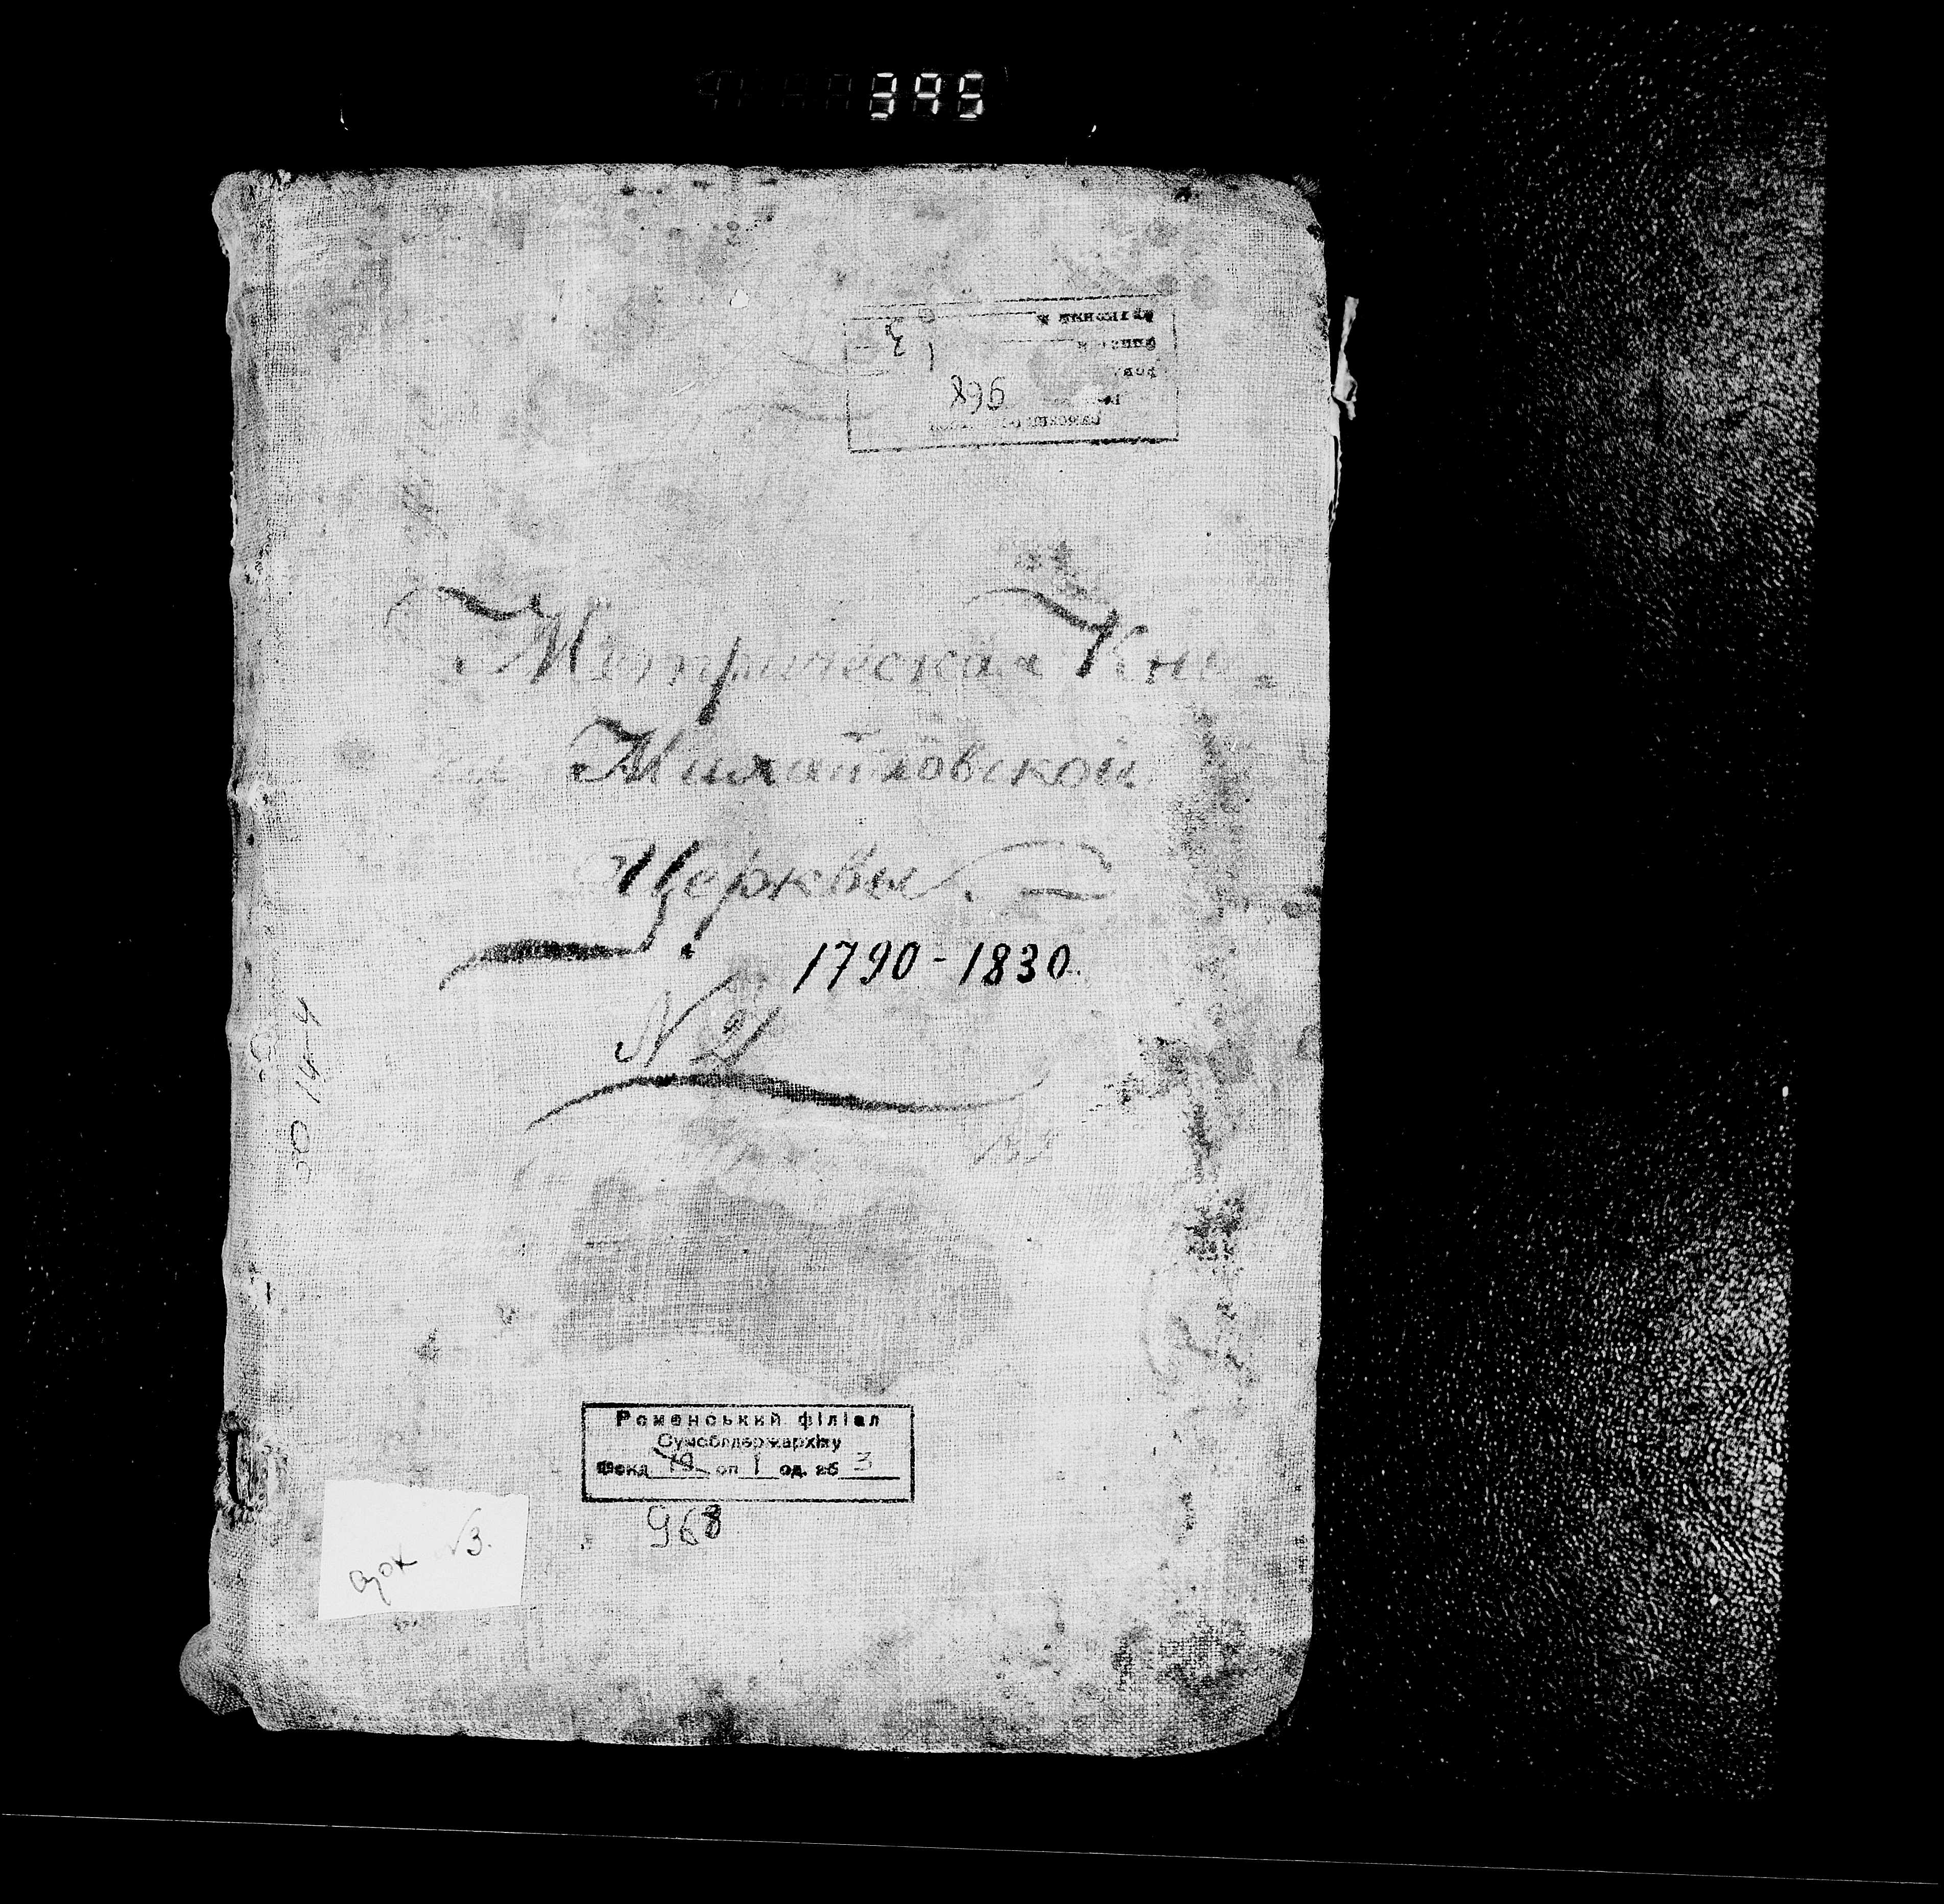 395
Метрическая Кни
Михайловской
Церкви.
1790-1830.
N 21
Роменський філіал
Сумоблдержархіву
Фонд 19 оп 1 од. зб 3
968
N3.
968